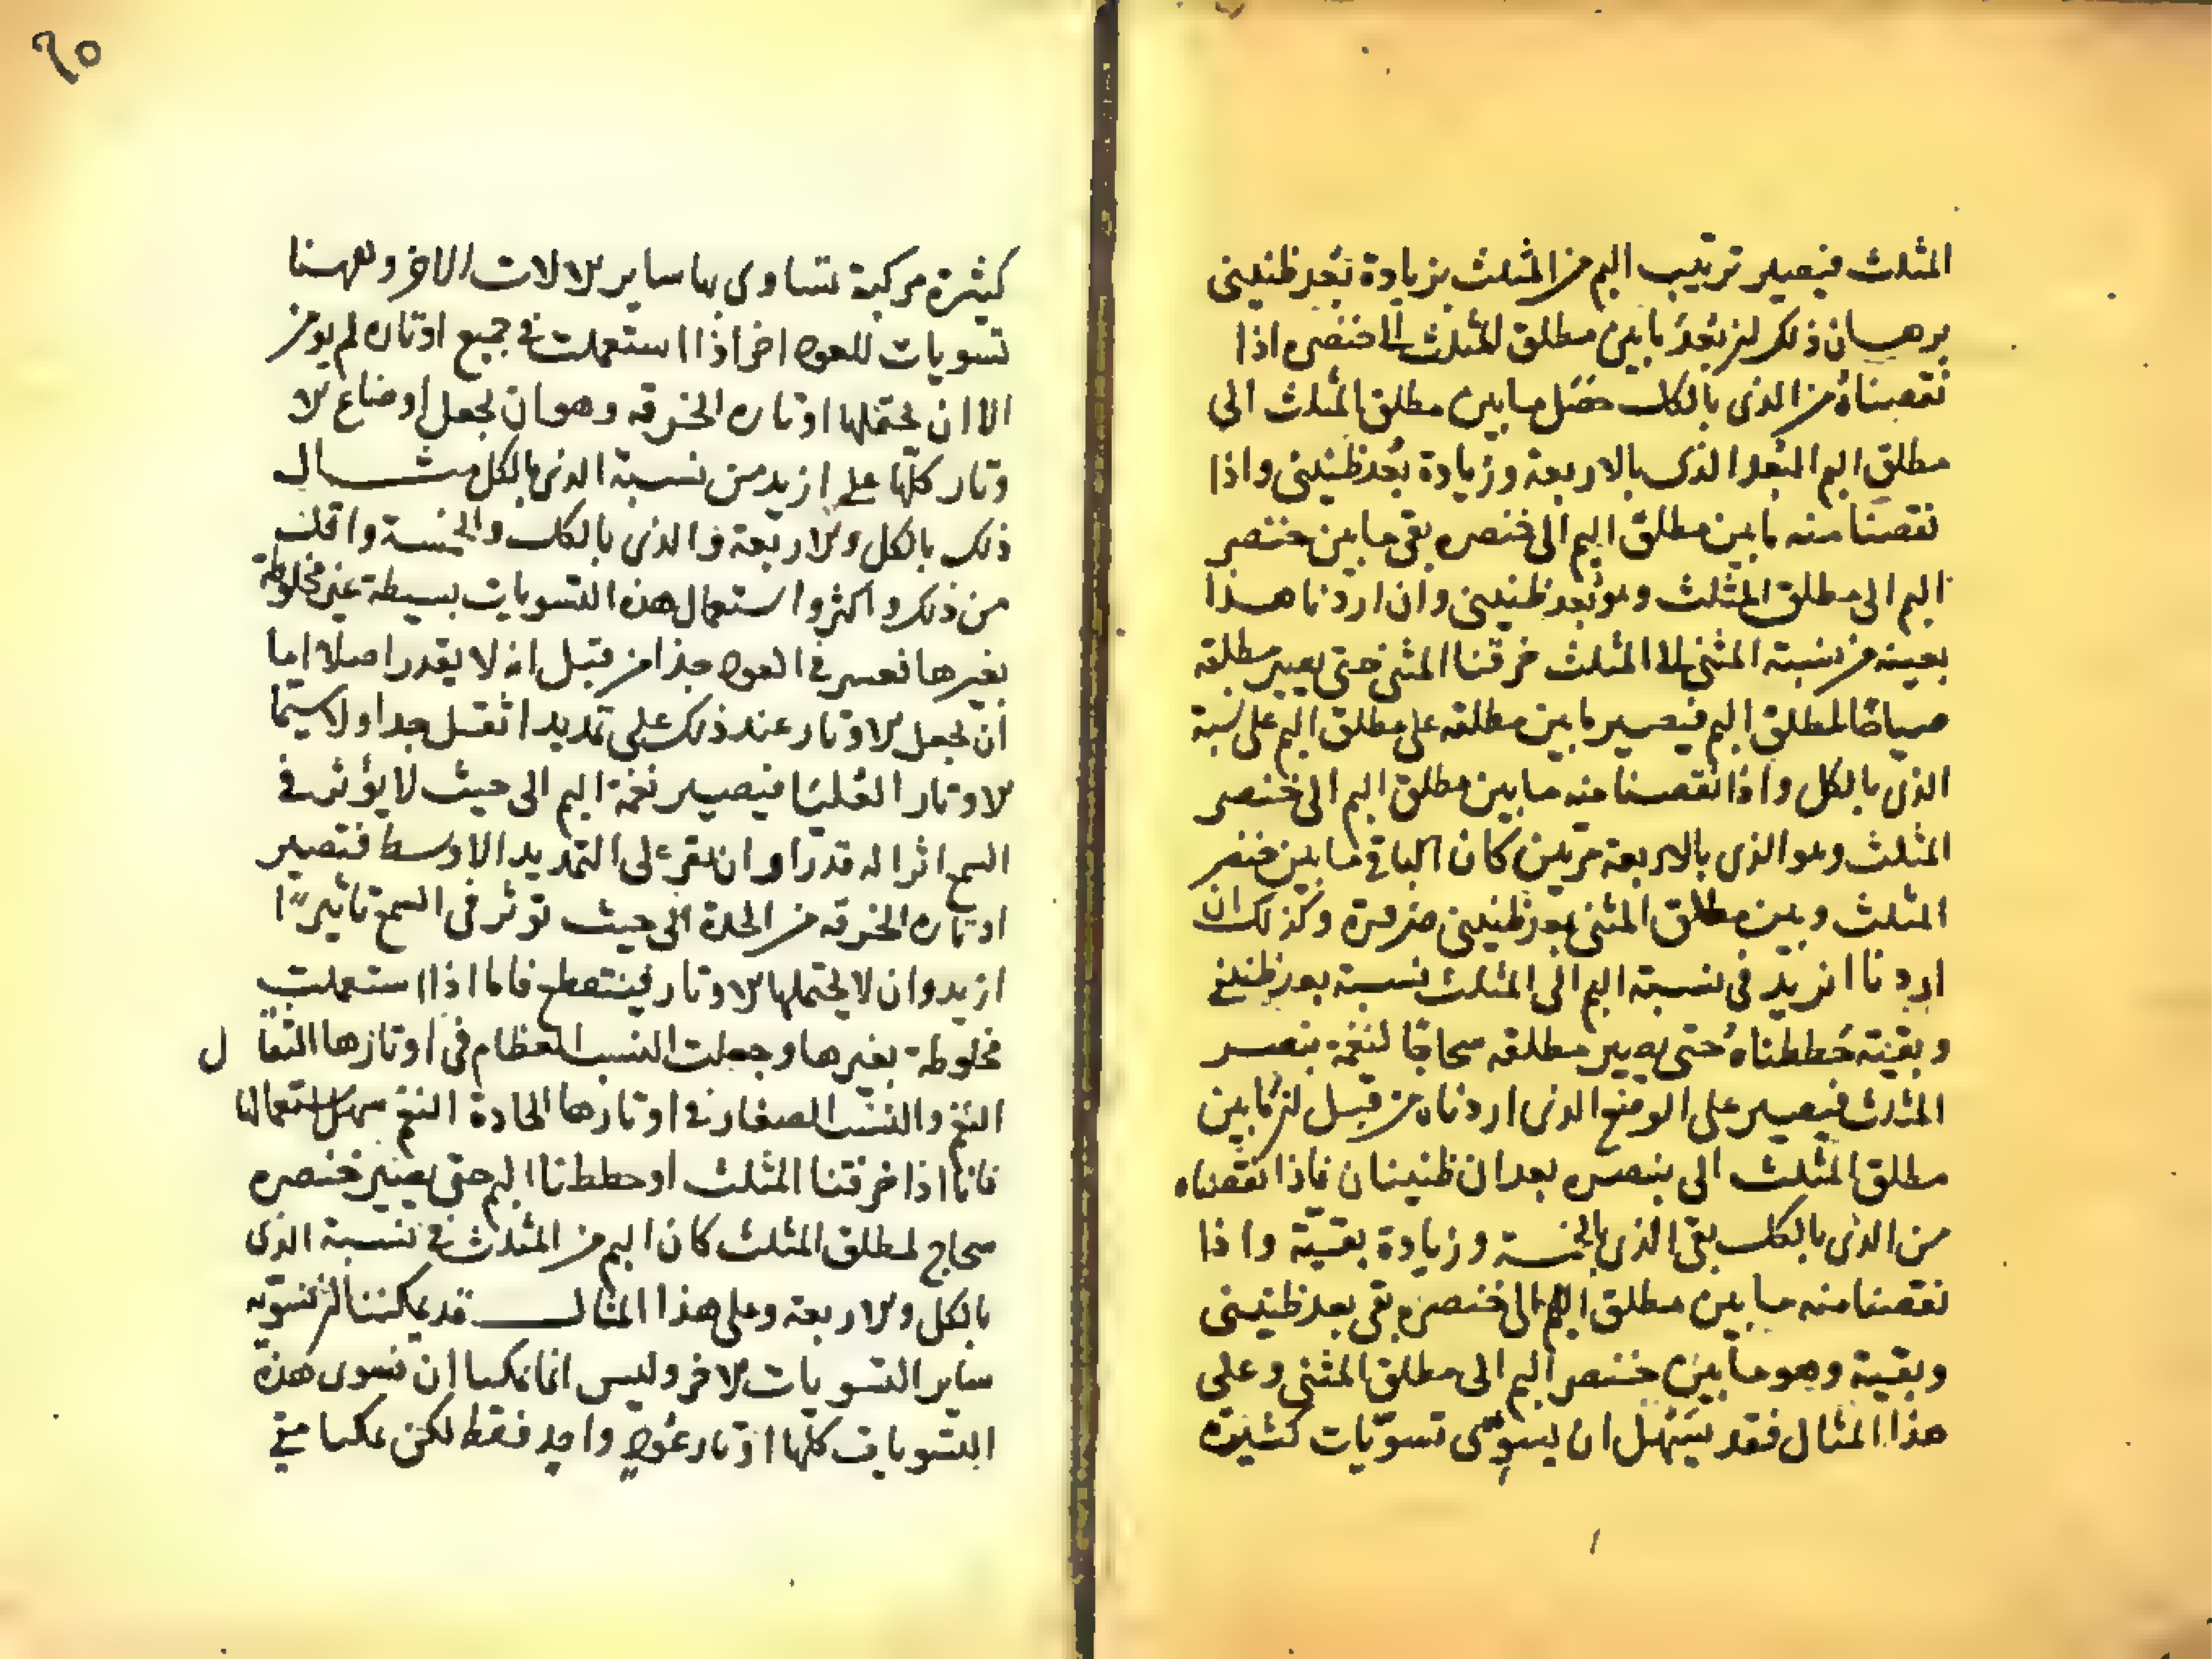 المثلث فيصير ترتيب البم من المثلث بزيادة بعد ظنيني
برهان ذلك ان بعد ما بين مطلق المثلث الى خنصره اذا
نقصناه من الذى بالكل حصل ما بين مطلق المثلث الى
مطلق البم البعد الذى بالاربعة وزيادة بعد ظنيني واذا
نقصنا منه ما بين مطلق البم الى خنصره بقى ما بين خنصر
البم الى مطلق المثلث وهو بعد ظنيني وان اردنا هذا
بعينه من نسبة المثنى الى المثلث خرقنا المثنى حتى يصير مطلقه
صياحا لمطلق البم فيصير ما بين مطلقه على مطلق البم على نسبة
الذى بالكل واذا نقصنا منه ما بين مطلق البم الى خنصر
المثلث وهو الذى بالاربعة مرتين كان الباقى ما بين خنصر
المثلث وبين مطلق المثنى بعد ظنيني ضرورة وكذلك ان
اردنا ان نزيد فى نسبة البم الى المثلث نسبة بعد ظنيني
وبقية حططناه حتى يصير مطلقه سحاجا لنغمة بنصر
المثلث فيصير على الوضع الذى اردناه من قبل ان ما بين
مطلق المثلث الى بنصره بعدان ظنينان فاذا نقصناه
من الذى بالكل بقى الذى بالخمسة وزيادة بقية واذا
نقصنا منه ما بين مطلق البم الى خنصره بقى بعد ظنيني
وبقية وهو ما بين خنصر البم الى مطلق المثنى وعلى
هذا المثال فقد يسهل ان يسوى تسويات كثيرة
٩٥
كثيرة مركبة تساوى بها ساير الالات الاخر وههنا
تسويات للعود اخر اذا استعملت فى جميع اوتاره لم يومن
الا ان يحتملها اوتاره الخرقه وهو ان يجعل اوضاع الا
وتار كلها على ازيد من نسبة الذى بالكل مثال
ذلك بالكل والاربعة والذى بالكل والخمسة واقل
من ذلك واكثر واستعمال هذه التسويات بسيطة غير مخلوطة
بغيرها تعسر فى العود جدا من قبل انه لا يقدر اصلا اما
ان يجعل الاوتار عند ذلك على تمديد اثقل جدا ولا سيما
الاوتار العليا فيصير نغمة البم الى حيث لا يؤثر فى
السمع اثرا له قدرا وان نقر على التمديد الاوسط فتصير
اوتاره الخرقه من الحدة الى حيث توثر فى السمع تاثيرا
ازيد وان لا يحتملها الاوتار فينقطع فاما اذا استعملت
مخلوطة بغيرها وجعلت النسب العظام فى اوتارها الثقال
النغم والنسب الصغار فى اوتارها الحادة النغم سهل استعمالها
فانا اذا خرقنا المثلث او حططنا البم حتى يصير خنصره
سحاج لمطلق المثلث كان البم من المثلث فى نسبة الذى
بالكل والاربعة وعلى هذا المثال قد يمكننا ان نسويه
ساير التسويات الاخر وليس انما يمكننا ان نسوى هذه
التسويات كلها اوتار عود واحد فقط لكن يمكننا متى